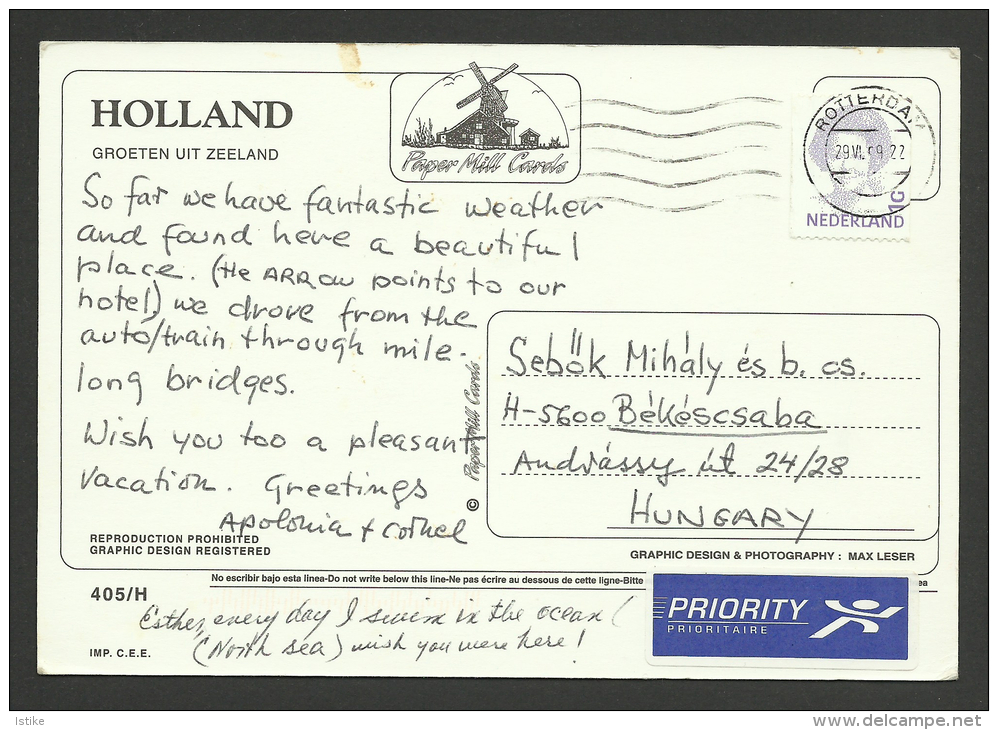 HOLLAND
GROETEN UIT ZEELAND
Paper Mill Cards
ROTTERDAM
NEDERLAND
1G
So far we have fantastic weather
and found here a beautiful
place. (the ARROW points to our
hotel) we drove from the
auto/train through mile-
long bridges.
Wish you too a pleasant
vacation. Greetings
Apolonia + Cornel
© Paper Mill Cards
Sebők Mihály és b. cs.
H-5600 Békéscsaba
Andrássy út 24/28
HUNGARY
REPRODUCTION PROHIBITED
GRAPHIC DESIGN REGISTERED
GRAPHIC DESIGN & PHOTOGRAPHY : MAX LESER
No escribir bajo esta linea-Do not write below this line-Ne pas écrire au dessous de cette ligne-Bitte
405/H
Esther, every day I swim in the ocean (
(North sea) wish you were here!
IMP. C.E.E.
PRIORITY
PRIORITAIRE
Istike
delcampe.net